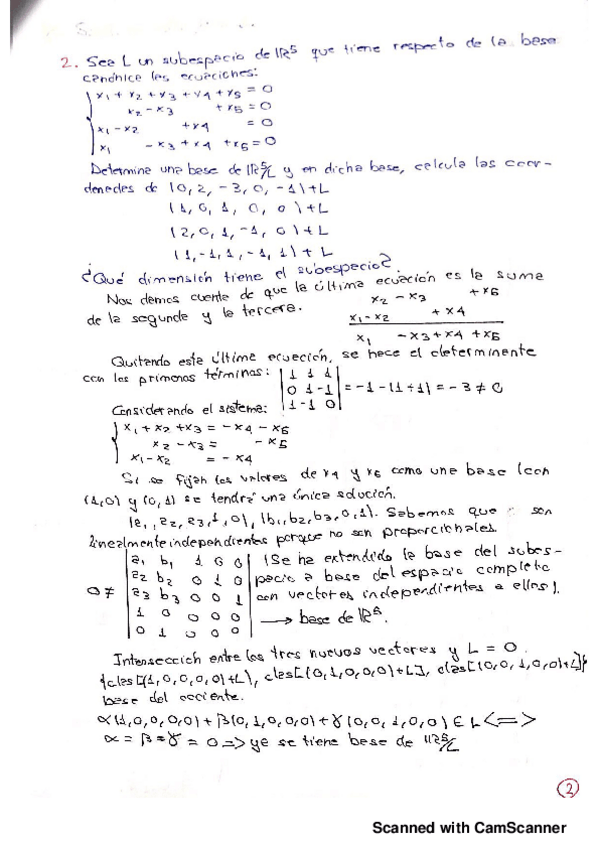 2. Sea L un subespacio de IR5 que tiene respecto de la base
canónica las ecuaciones:
x1 + x2 + x3 + x4 + x5 = 0
x2 - x3 + x5 = 0
x1 - x2 + x4 = 0
x1 - x3 + x4 + x5 = 0
Determina una base de IR5/L y en dicha base, calcula las coor-
denadas de (0, 2, -3, 0, -1)+L
(1, 0, 1, 0, 0)+L
(2, 0, 1, -1, 0)+L
(1, -1, 1, -1, 1)+L
¿Qué dimensión tiene el subespacio?
Nos damos cuenta de que la última ecuación es la suma
de la segunda y la tercera.
x2 - x3 + x5
x1 - x2 + x4
x1 - x3 + x4 + x5
Quitando esta última ecuación, se hace el determinante
con los primeros términos: | 1 1 1 |
| 0 1 -1 | = -1 - (1+1) = -3 ≠ 0
| 1 -1 0 |
Considerando el sistema:
x1 + x2 + x3 = -x4 - x5
x2 - x3 = - x5
x1 - x2 = - x4
Si se fijan los valores de x4 y x5 como una base (con
(1,0) y (0,1) se tendrá una única solución.
(a1, a2, a3, 1, 0), (b1, b2, b3, 0, 1). Sabemos que son
linealmente independientes porque no son proporcionales.
0 ≠ | a1 b1 1 0 0 |
| a2 b2 0 1 0 |
| a3 b3 0 0 1 |
| 1 0 0 0 0 |
| 0 1 0 0 0 |
(Se ha extendido la base del subes-
pacio a base del espacio completo
con vectores independientes a ellos).
→ base de IR5.
Intersección entre los tres nuevos vectores y L = 0.
{clas[(1,0,0,0,0)+L], clas[(0,1,0,0,0)+L], clas[(0,0,1,0,0)+L]}
base del cociente.
α(1,0,0,0,0) + β(0,1,0,0,0) + γ(0,0,1,0,0) ∈ L <=>
α = β = γ = 0 => ya se tiene base de IR5/L
2
Scanned with CamScanner